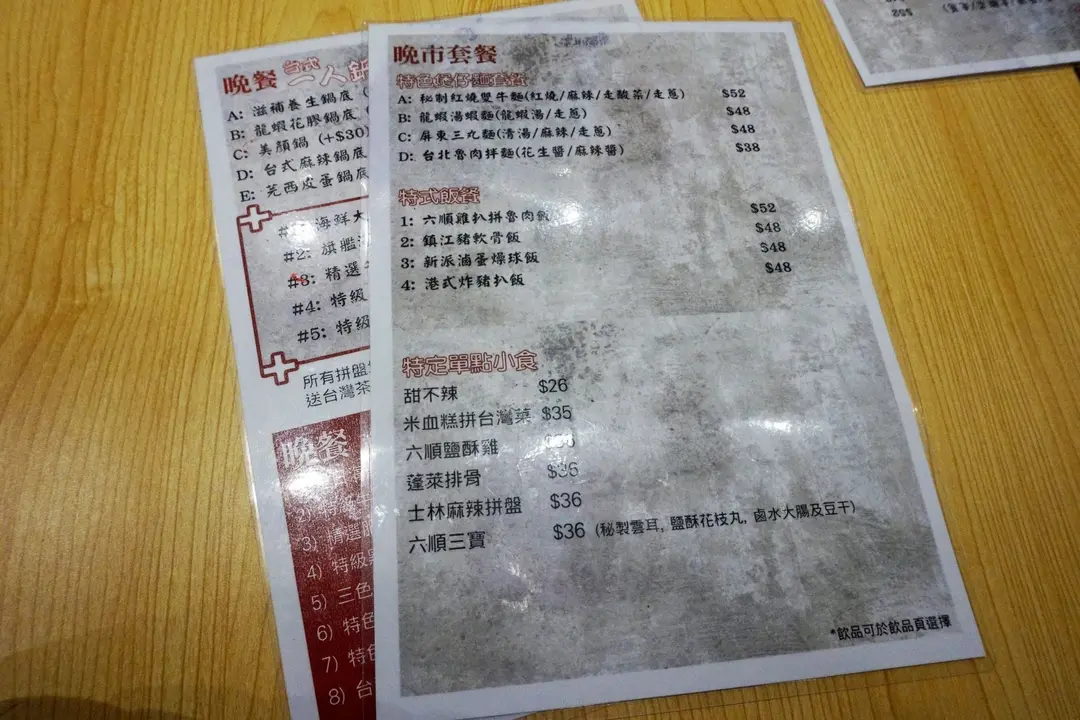 晚市套餐
特色煲仔麵套餐
A: 秘制紅燒雙牛麵(紅燒/麻辣/走酸菜/走蔥) $52
B: 龍蝦湯蝦麵(龍蝦湯/走蔥) $48
C: 屏東三丸麵(清湯/麻辣/走蔥) $48
D: 台北魯肉拌麵(花生醬/麻辣醬) $38
特式飯餐
1: 六順雞扒拼魯肉飯 $52
2: 鎮江豬軟骨飯 $48
3: 新派滷蛋燥球飯 $48
4: 港式炸豬扒飯 $48
特定單點小食
甜不辣 $26
米血糕拼台灣菜 $35
六順鹽酥雞
蓬萊排骨 $36
士林麻辣拼盤 $36
六順三寶 $36 (秘製雲耳, 鹽酥花枝丸, 鹵水大腸及豆干)
*飲品可於飲品頁選擇
晚餐 台式一人鍋
A: 滋補養生鍋底 (
B: 龍蝦花膠鍋底 (
C: 美顏鍋 (+$30)
D: 台式麻辣鍋底
E: 芫西皮蛋鍋底
海鮮大
#2: 旗艦
#3: 精選
#4: 特級
#5: 特級
所有拼盤
送台灣茶
晚餐
3) 精選
4) 特級
5) 三色
6) 特色
7) 特
8) 台
$52